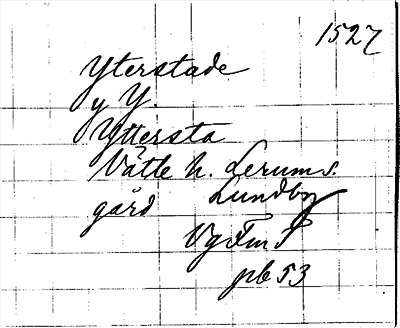 1527
Yterstade
y Y.
Yttersta
Vätle h. Lerum s.
gård Lundby
VgFmT
pb 53